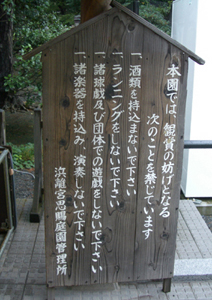 本園では、観賞の妨げとなる
次のことを禁じています
一、酒類を持込まないで下さい
一、ランニングをしないで下さい
一、諸球戯及び団体での遊戯をしないで下さい
一、諸楽器を持込み、演奏しないで下さい
浜離宮恩賜庭園管理所